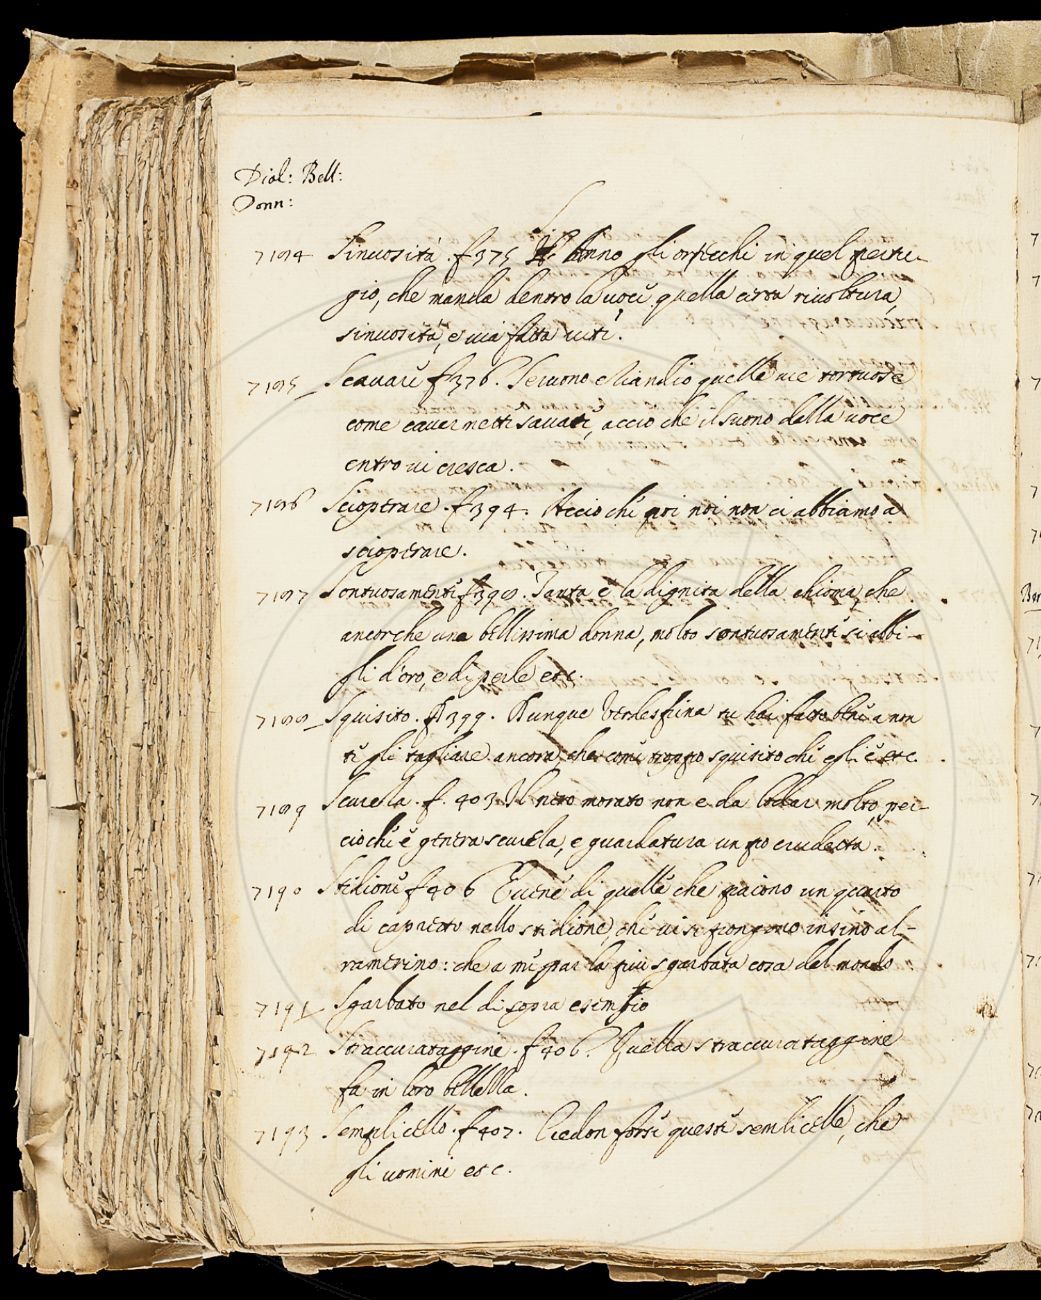 Dial: Bell:
Donn:
7184 Sinuosità. f 375 Hanno gli orecchi in quel pertu-
gio, che manda dentro la voce quella certa rivoltura,
sinuosità, e via fatta
7185 Scavare f 376. Servono etiandio quelle vie tortuose
come cavernette scavate, acciò che il suono della voce
entro vi cresca.
7186 Scioperare. f 394. Acciò che poi noi non ci abbiamo a
scioperare.
7187 Sontuosamente f 398. Tanta è la dignita della chioma, che
ancorche una bellissima donna, molto sontuosamente si abbi-
gli d'oro, e di perle etc.
7188 Squisito. f 399. Dunque Verdespina tu hai fatto bene a non
te gli tagliare ancora, che come troppo squisito che egli è etc.
7189 f. 403. Il nero morato non e da lodar molto, per-
cioche è genera e guardatura un po crudetta.
7190 Stidione f 406 Evene di quelle che paiono un quarto
di capretto nello stidione, che vi si pongono insino al-
ramerino: che a me par la piu sgarbata cosa del mondo
7191 Sgarbato nel di sopra esempio
7192 Straccurataggine. f 406. Quella straccurataggine
fa in loro bellella.
7193 Semplicello. f 407. Credon forse queste semlicelle, che
gli uomini etc.